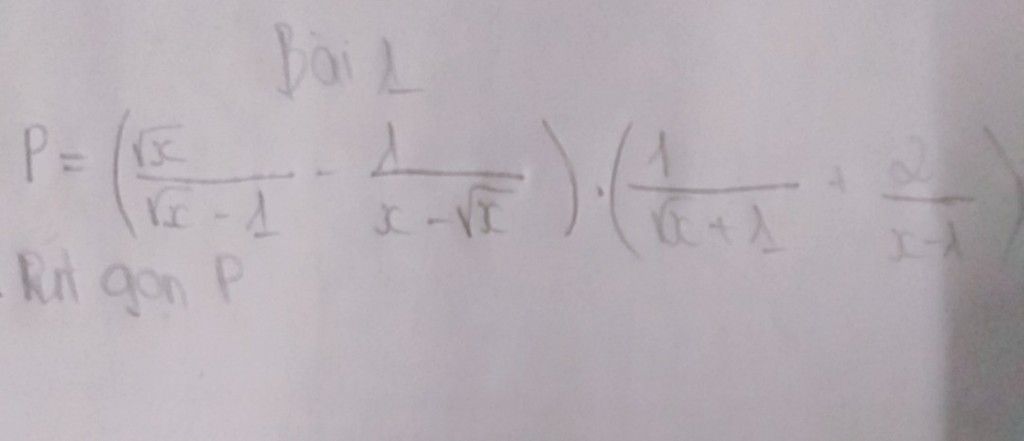 Bài 1
P = (√x/(√x - 1) - 1/(x - √x)) . (1/(√x + 1) + 2/(x - 1))
Rút gọn P